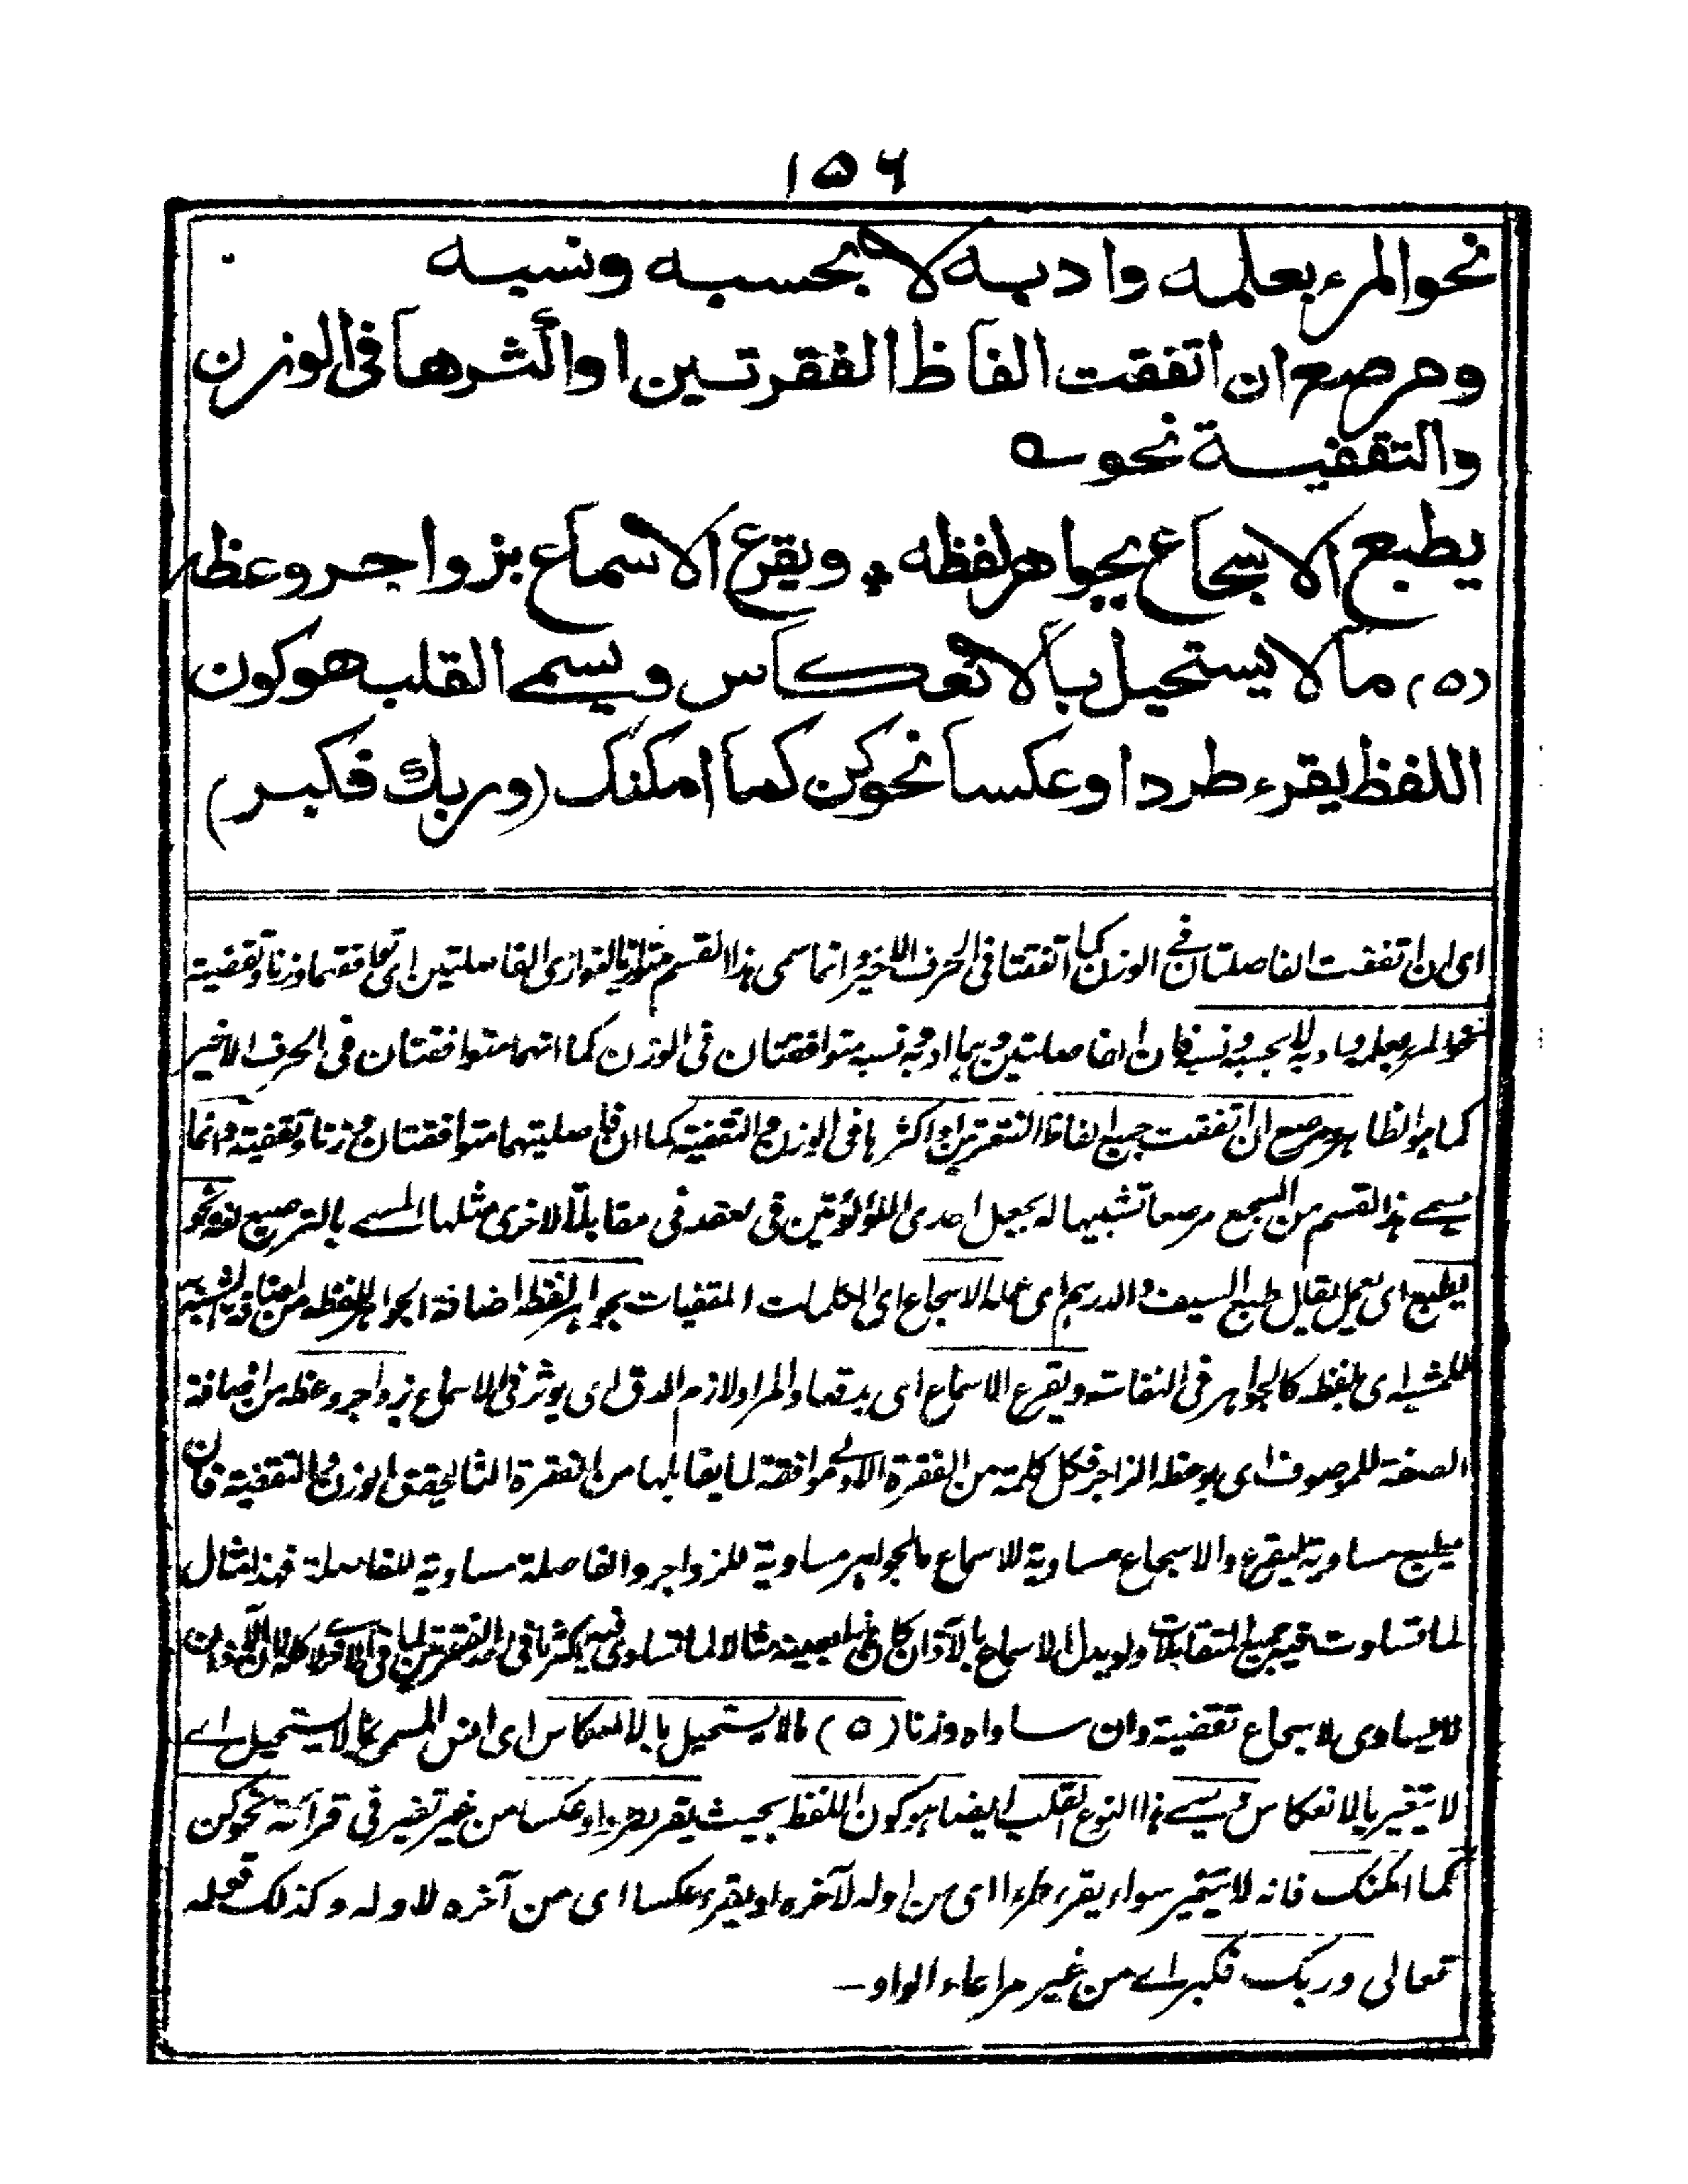 ۱۵۶
نحو المرء بعلمه وادبه لا بحسبه ونسبه
ومرصع ان اتفقت الفاظ الفقرتين او اكثرها فى الوزن
والتقفية نحو ـه
يطبع الاسجاع بجواهر لفظه ٭ ويقرع الاسماع بزواجر وعظه
(۵) ما لا يستحيل بالانعكاس ويسمى القلب هو كون
اللفظ يقرء طردا وعكسا نحو كن كما امكنك (وربك فكبر)
اى ان اتفقت الفاصلتان فى الوزن كما اتفقتا فى الحرف الاخير وانما سمى هذا القسم متوازيا لتوازى الفاصلتين اى توافقهما وزنا وتقفية
نحو المرء بعلمه وادبه لا بحسبه ونسبه فان الفاصلتين وهما ادبه ونسبه متوافقتان فى الوزن كما انهما متوافقتان فى الحرف الاخير
كما هو الظاهر ومرصع ان اتفقت جميع الفاظ الفقرتين او اكثرها فى الوزن والتقفية كما ان فاصلتيهما متوافقتان وزنا وتقفية وانما
يسمى هذا القسم من السجع مرصعا تشبيها له بجعل احدى اللؤلؤتين فى العقد فى مقابلة الاخرى مثلها المسمى بالترصيع لغة نحو
يطبع اى يعمل يقال طبع السيف والدرهم اى عمله الاسجاع اى الكلمات المقفيات بجواهر لفظه اضافة الجواهر للفظه من اضافة المشبه به
للمشبه اى بلفظه كالجواهر فى النفاسة ويقرع الاسماع اى يدقها والمراد لازم الدق اى يوثر فى الاسماع بزواجر وعظه من اضافة
الصفة للموصوف اى بوعظه الزاجر فكل كلمة من الفقرة الاولى موافقة لما يقابلها من الفقرة الثانية فى الوزن والتقفية فان
يطبع مساوية ليقرع والاسجاع مساوية للاسماع والجواهر مساوية للزواجر والفاصلة مساوية للفاصلة فهذا مثال
لما تساوت فيه جميع المتقابلات ولو بدل الاسماع بالآذان كان بعينه مثالا لما تساوى فيه اكثر ما فى الفقرتين لما فى الاخرى لان الآذان
لا يساوى لاسجاع تقفية وان ساواه وزنا (۵) ما لا يستحيل بالانعكاس اى الفن المسمى بما لا يستحيل اى
لا يتغير بالانعكاس ويسمى هذا النوع القلب ايضا هو كون اللفظ بحيث يقرء طردا وعكسا من غير تغير فى قرائته نحو كن
كما امكنك فانه لا يتغير سواء يقرء طردا اى من اوله لآخره او يقرء عكسا اى من آخره لاوله وكذلك قوله
تعالى وربك فكبر اى من غير مراعاء الواو ـ